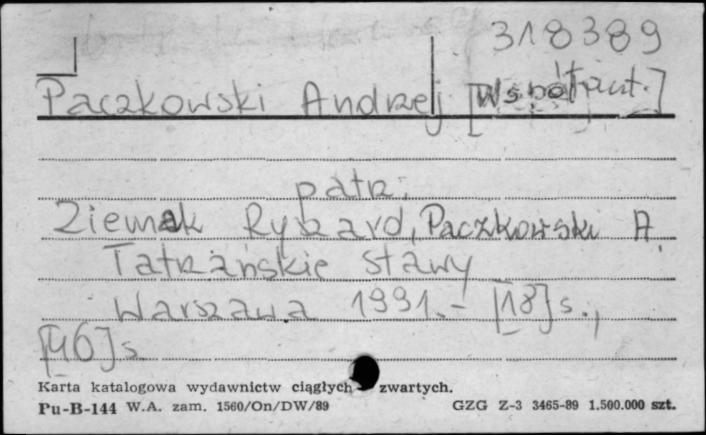 318389
Paczkowski Andrzej [Współaut.]
patrz:
Ziemak Ryszard, Paczkowski A.
Tatrzańskie stawy
Warszawa 1991.- [18] s.,
[46] s.
Karta katalogowa wydawnictw ciągłych zwartych.
Pu-B-144 W.A. zam. 1560/On/DW/89 GZG Z-3 3465-89 1.500.000 szt.